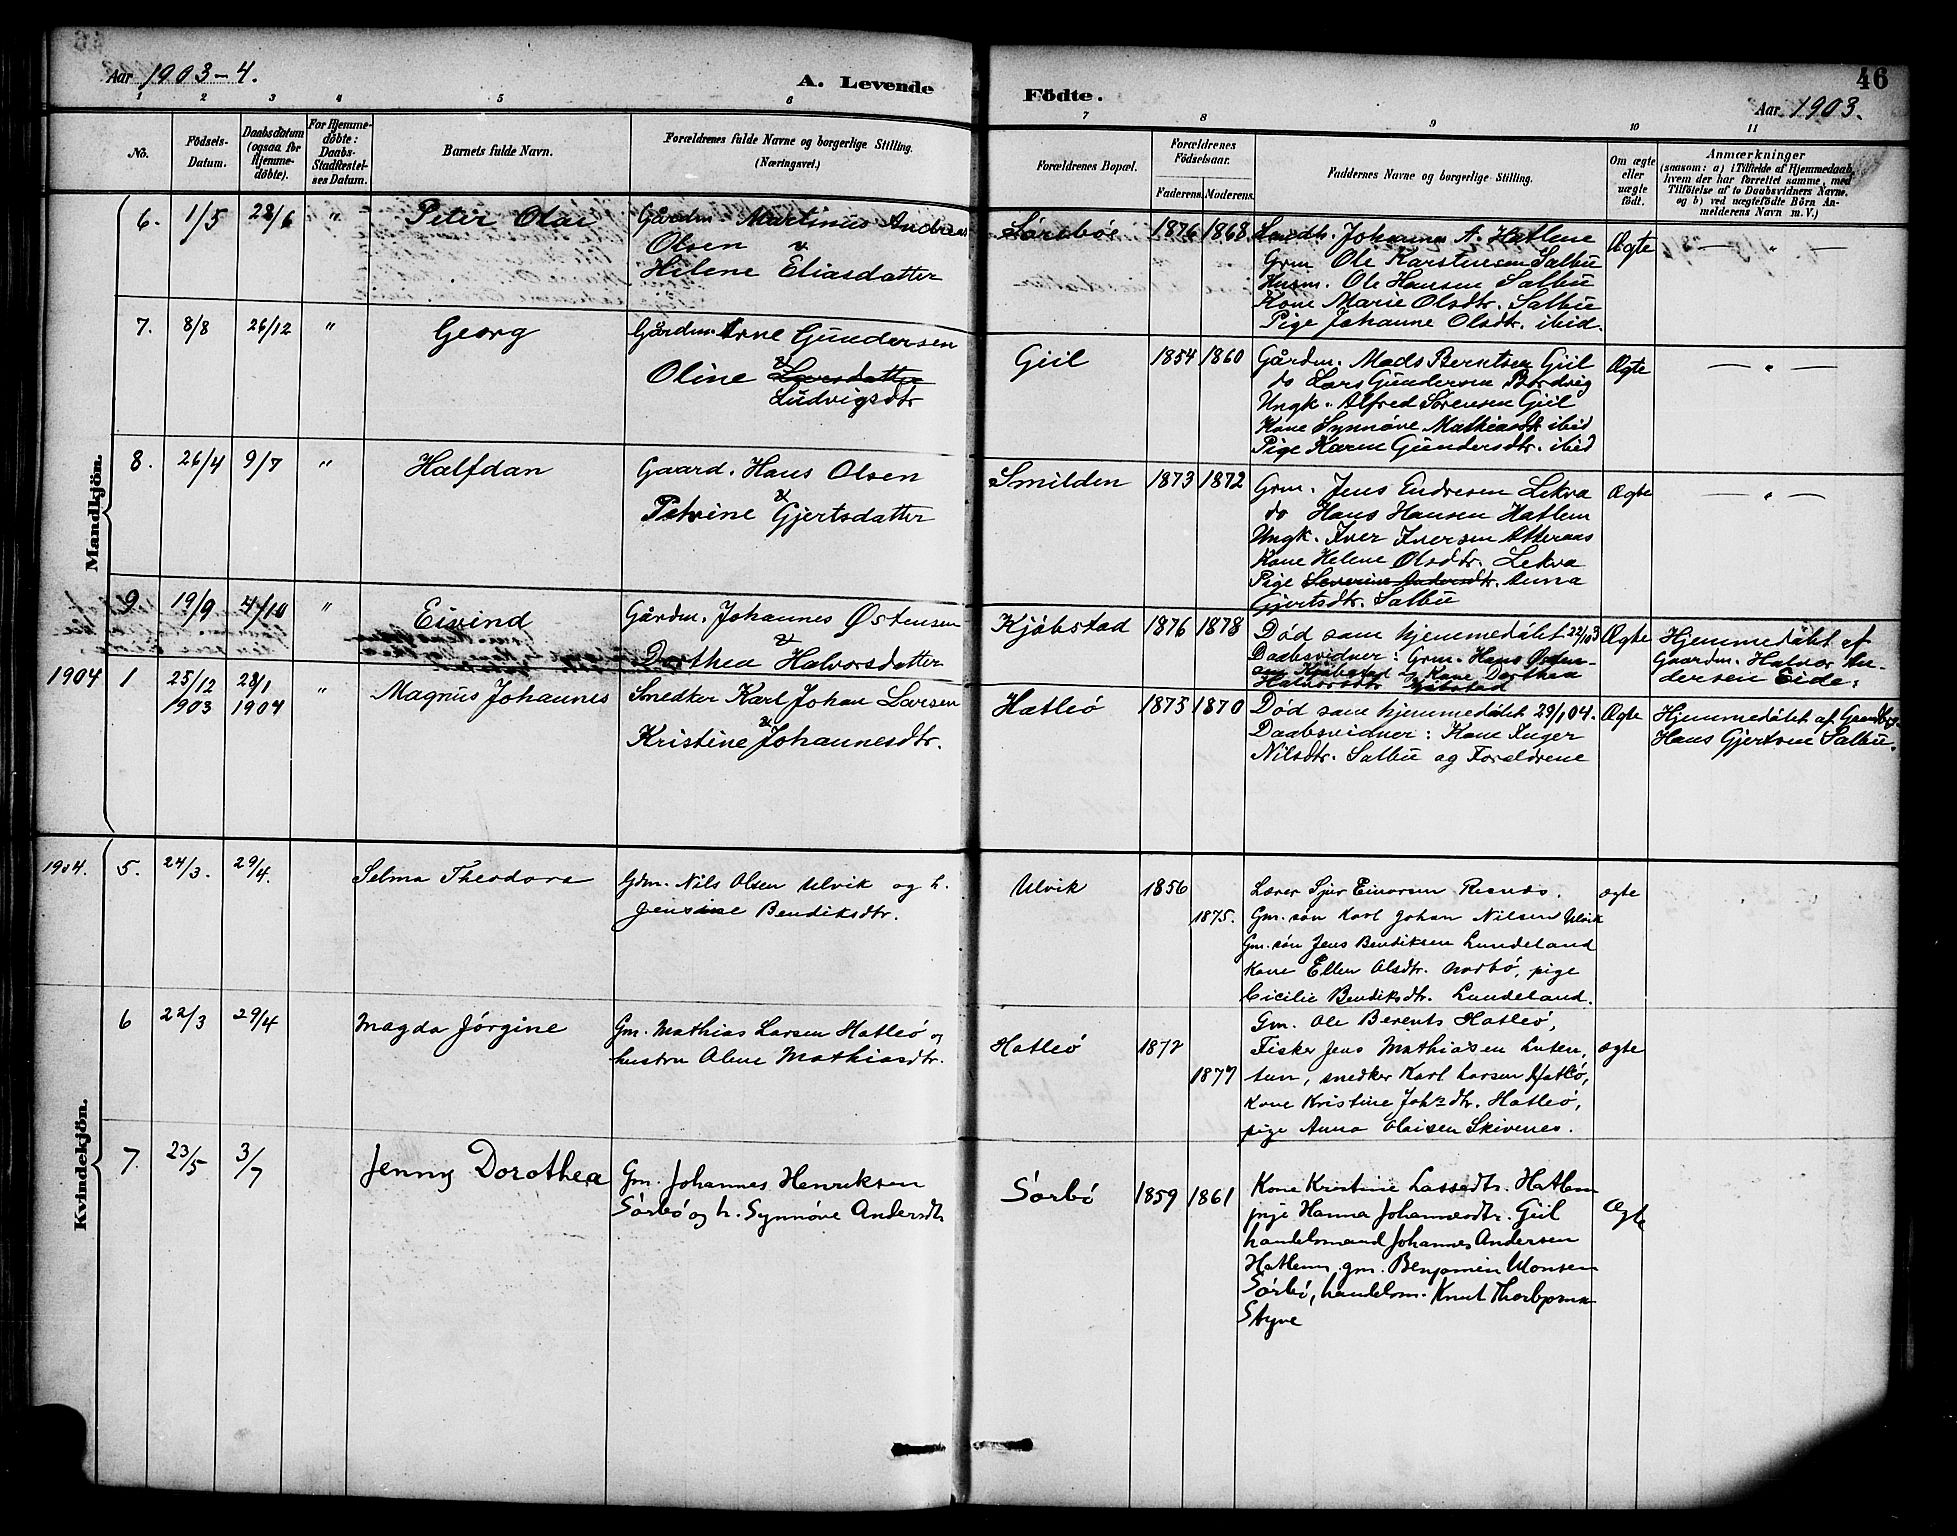 Aar 1903-4.
A. Levende
Födte.
46
Aar 1903.
1 2 3 4 5 6 7 8 9 10 11
No.
Födsels-
Datum.
Daabsdatum
(ogsaa for
Hjemme-
døbte).
For Hjemme-
døbte:
Daabs-
Stadfæstel-
ses Datum.
Barnets fulde Navn.
Forældrenes fulde Navne og borgerlige Stilling.
(Næringsvei.)
Forældrenes Bopæl.
Forældrenes
Födselsaar.
Faderens. Moderens.
Faddernes Navne og borgerlige Stilling.
Om ægte
eller
uægte
födt.
Anmærkninger
(saasom: a) i Tilfælde af Hjemmedaab,
hvem der har forrettet samme, med
Tilföielse af to Daabsvidners Navne.
og b) ved uægtefödte Börn An-
melderens Navn m. V.)
Mandkjön.
6. 1/5 28/6 " Peter Olai
Gårdm. Martinus Andreas
Olsen &
Helene Eliasdatter
Sørebøe 1876 1868
Johanna A. Hatlene
Grm Ole Karstensen Salbu
Husm. Ole Hansen Salbu
Kone Marie Olsdtr. Salbu
Pige Johanne Olsdtr. ibid.
Ægte — " —
7. 8/8 26/12 " Georg
Gårdm. Arne Gundersen
&
Oline Larsdatter
Ludvigsdtr
Giil 1854 1860
Gårdm. Mads Berntsen Giil
do Lars Gundersen Bordvig
Ungk. Alfred Sørensen Giil
Kone Synnøve Mathiasdtr ibid
Pige Karen Gundersdtr. ibid
Ægte — " —
8. 26/4 9/7 " Halfdan
Gaard. Hans Olsen
&
Petrine Gjertsdatter
Smilden 1873 1872
Grm. Jens Endresen Lekva
do Hans Hansen Hatlem
Ungk. Iver Iversen Atteraas
Kone Helene Olsdtr. Lekva
Pige Severine Andersdtr. Anna
Gjertsdtr. Salbu
Ægte — " —
9 19/9 4/10 " Eivind
Gårdm. Johannes Østensen
&
Dorthea Halvorsdatter
Kjøbstad 1876 1878
Død som hjemmedøbt 22/10 3
Daabsvidner: Grm. Hans Østen-
sen Kjøbstad & Kone Dorthea
Halvorsdtr Kjøbstad
Ægte
Hjemmedøbt af
Gaardm. Halvor An-
dersen Eide.
1904 1 25/12 1903 28/1 1904 " Magnus Johannes
Snedker Karl Johan Larsen
&
Kristine Johannesdtr.
Hatleö 1875 1870
Død som hjemmedøbt 29/1 04.
Daabsvidner: Kone Inger
Nilsdtr. Salbu og Forældrene
Ægte
Hjemmedøbt af
Hans Gjertsen Salbu.
Kvindekjön.
1904. 5. 24/3. 29/4. Selma Theodora
Gdm. Nils Olsen Ulvik og h.
Jensine Bendiksdtr.
Ulvik 1856
1875.
Lærer Sjur Einarsen Risnes.
Gm. søn Karl Johan Nilsen Ulvik
Gm. søn Jens Bendiksen Lundeland
Kone Ellen Olsdtr. Norbö, pige
Cicilie Bendiksdtr. Lundeland.
ægte
6 22/3 29/4 Magda Jörgine
Gm. Mathias Larsen Hatleö og
hustru Oline Mathiasdtr.
Hatleö 1872
1877
Gm. Ole Berents Hatleö,
Fisker Jens Mathiasen Luten,
tun, snedker Karl Larsen Hatleö,
Kone Kristine Johsdtr. Hatleö,
pige Anna Olaisen Skivenes.
ægte
7. 23/5 3/7 Jenny Dorothea
Gm. Johannes Henriksen
Sörbö og h. Synnöve Andersdtr
Sörbö 1859 1861
Kone Kristine Lassedtr. Hatlem
pige Hanna Johannesdtr. Giil
handelsmand Johannes Andersen
Hatlem. gm. Benjamin Monsen
Sörbö, handelsm. Knut Thorbjørnsen
Styve
Ægte